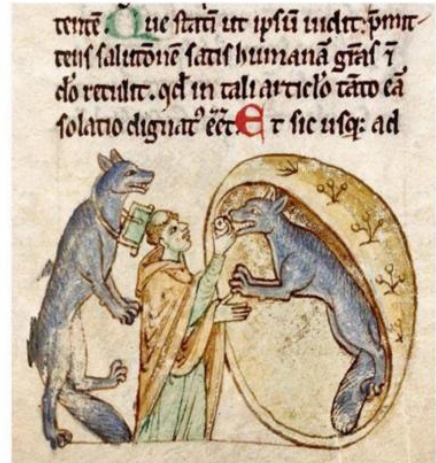 tentē. Que statī ut ipsū uidit. p̄mit-
tens salutōnē satis humanā gr̄as ⁊
dō retulit. qđ in tali articl̓o tāto eā
solatio dignatꝰ eēt. Et sic usqꝫ ad